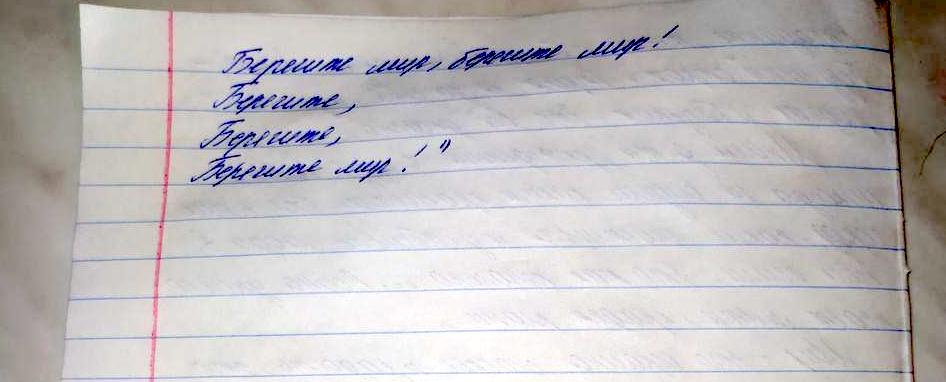 Берегите мир, берегите мир!
Берегите,
Берегите,
Берегите мир!"